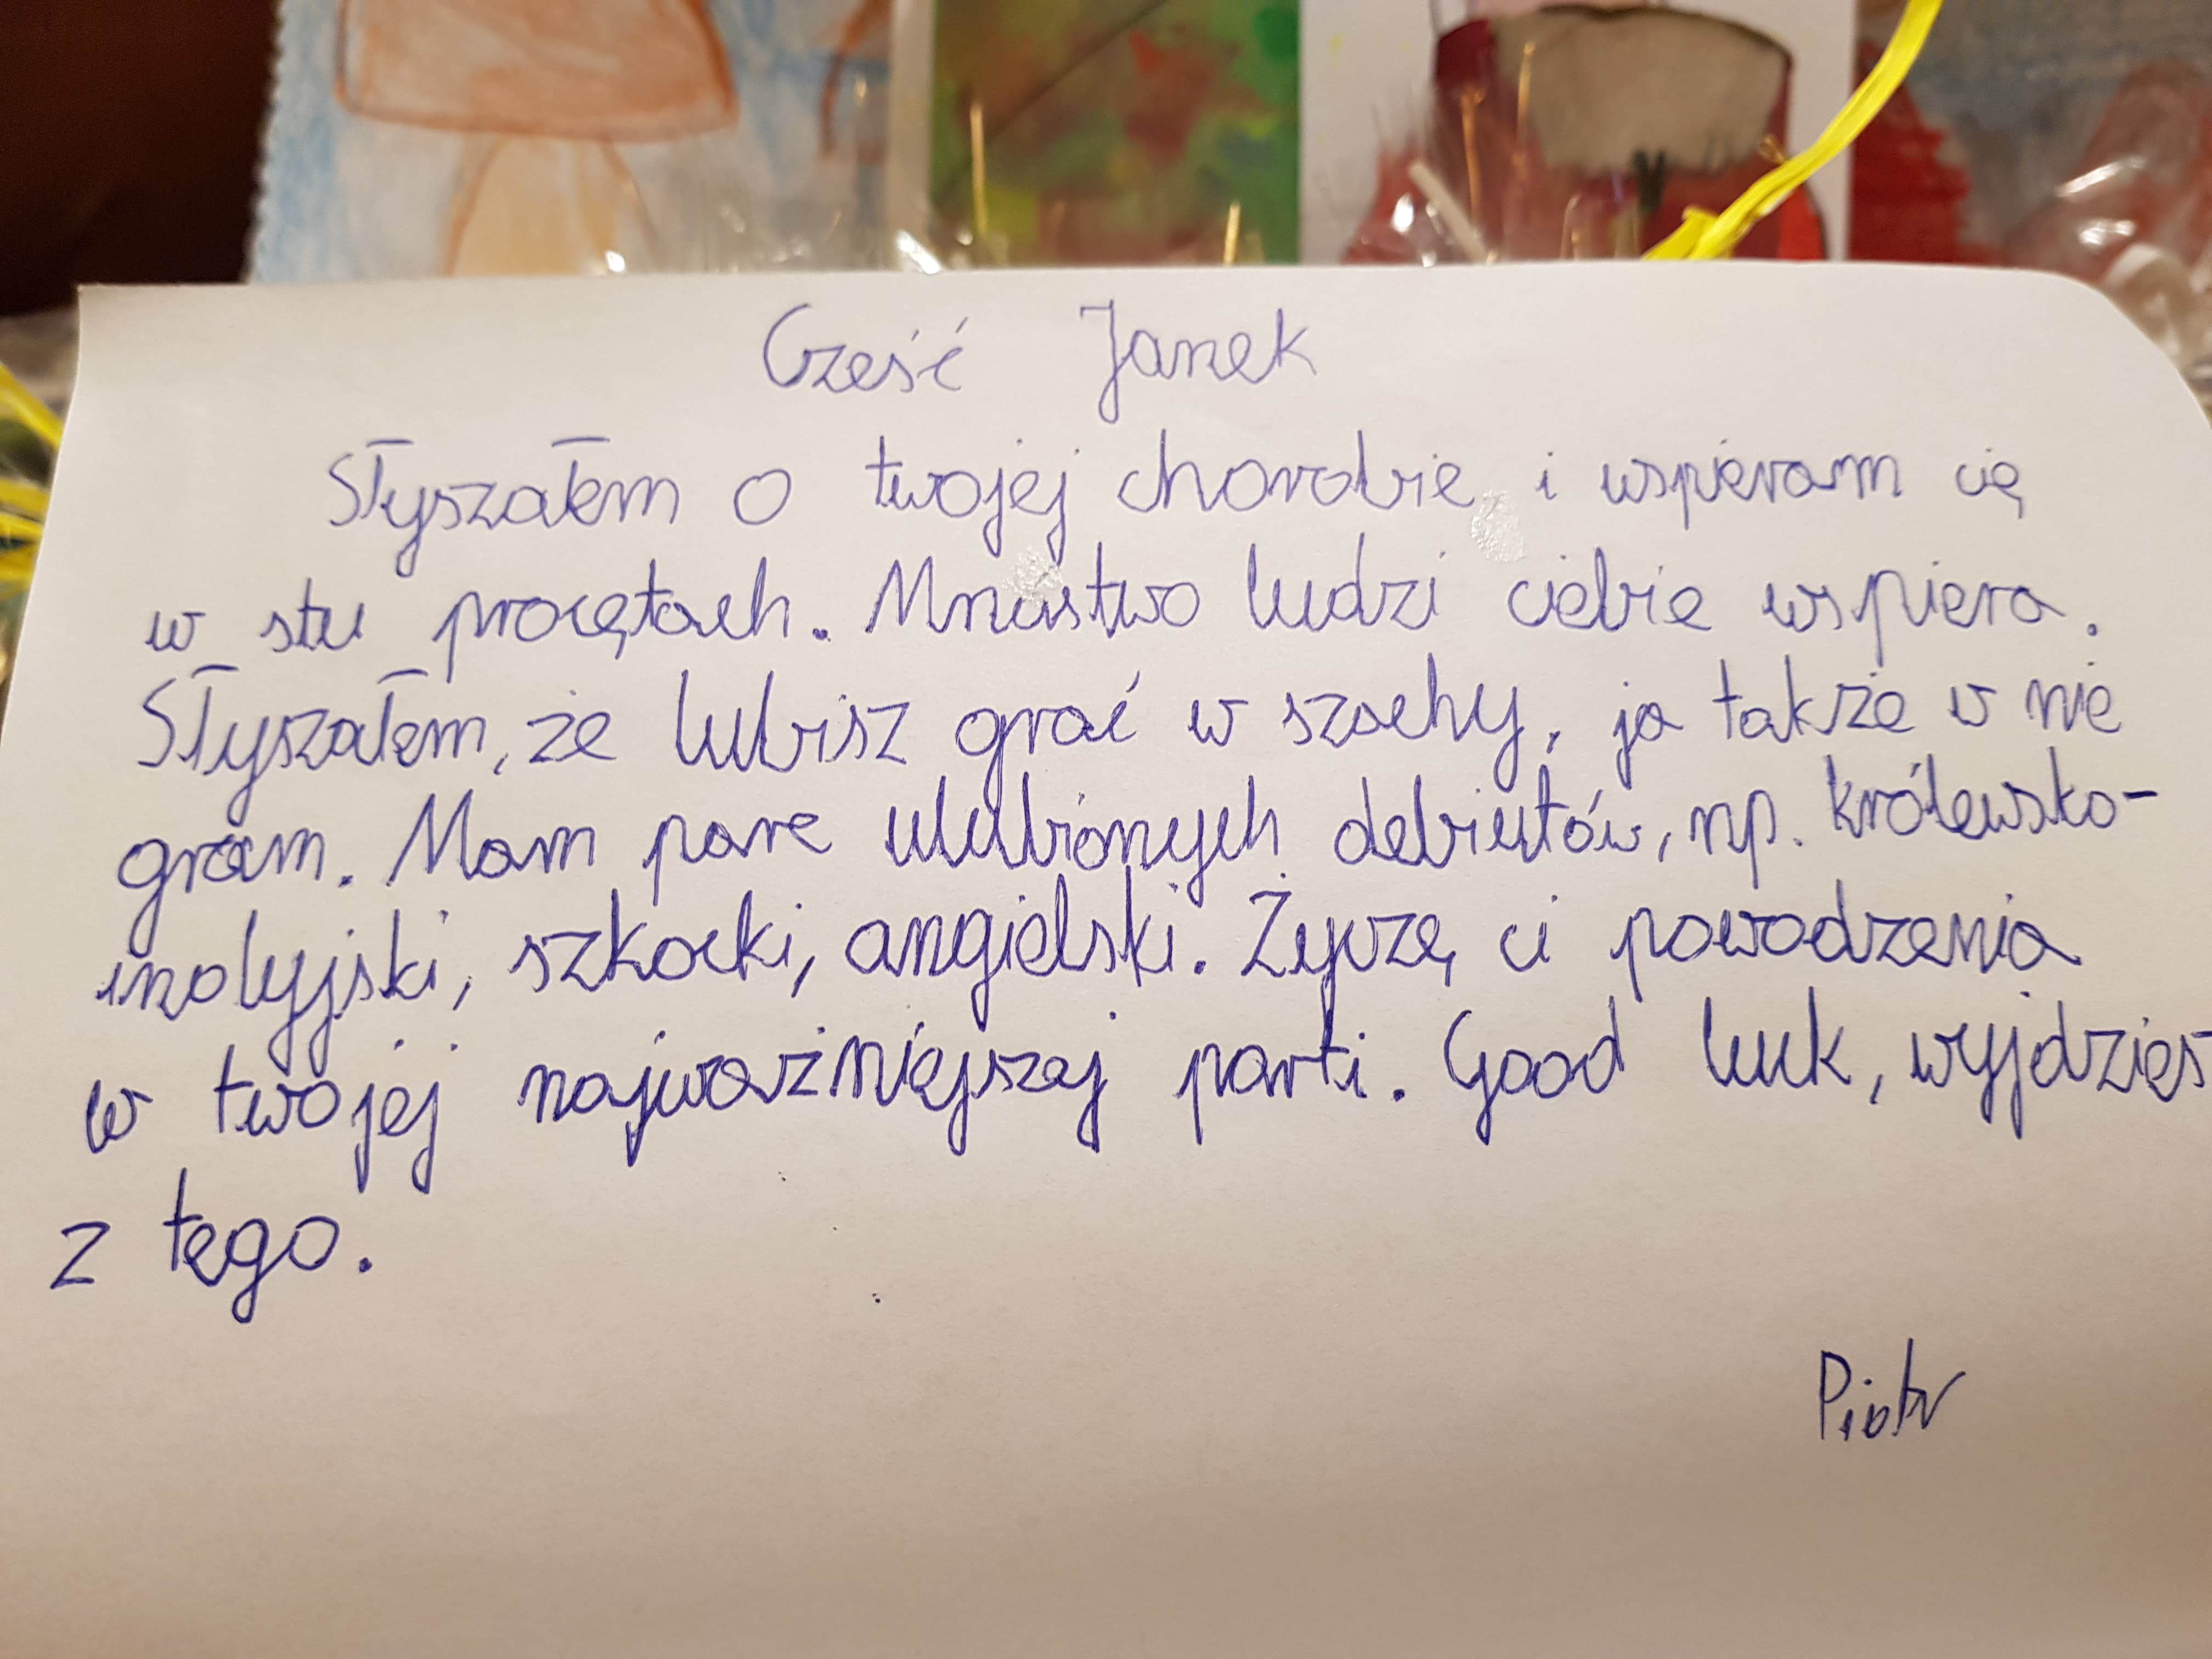 Cześć Janek
Słyszałem o twojej chorobie i wspieram cię
w stu procętach. Mnustwo ludzi ciebie wspiera.
Słyszałem, że lubisz grać w szachy, ja także w nie
gram. Mam pare ulubionych debiutów, np. królewsko-
indyjski, szkocki, angielski. Życzę ci powodzenia
w twojej najważniejszej parti. Good luck, wyjdzies
z tego.
Piotr